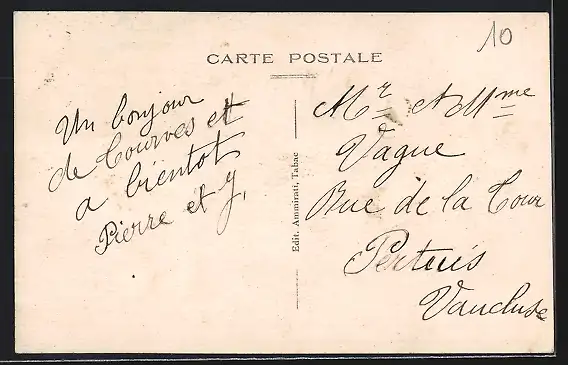 10
CARTE POSTALE
Un bonjour
de Tourves et
a bientot
Pierre et Y.
Edit. Ammirati, Tabac
Mr et Mme
Vague
Rue de la Tour
Pertuis
Vaucluse